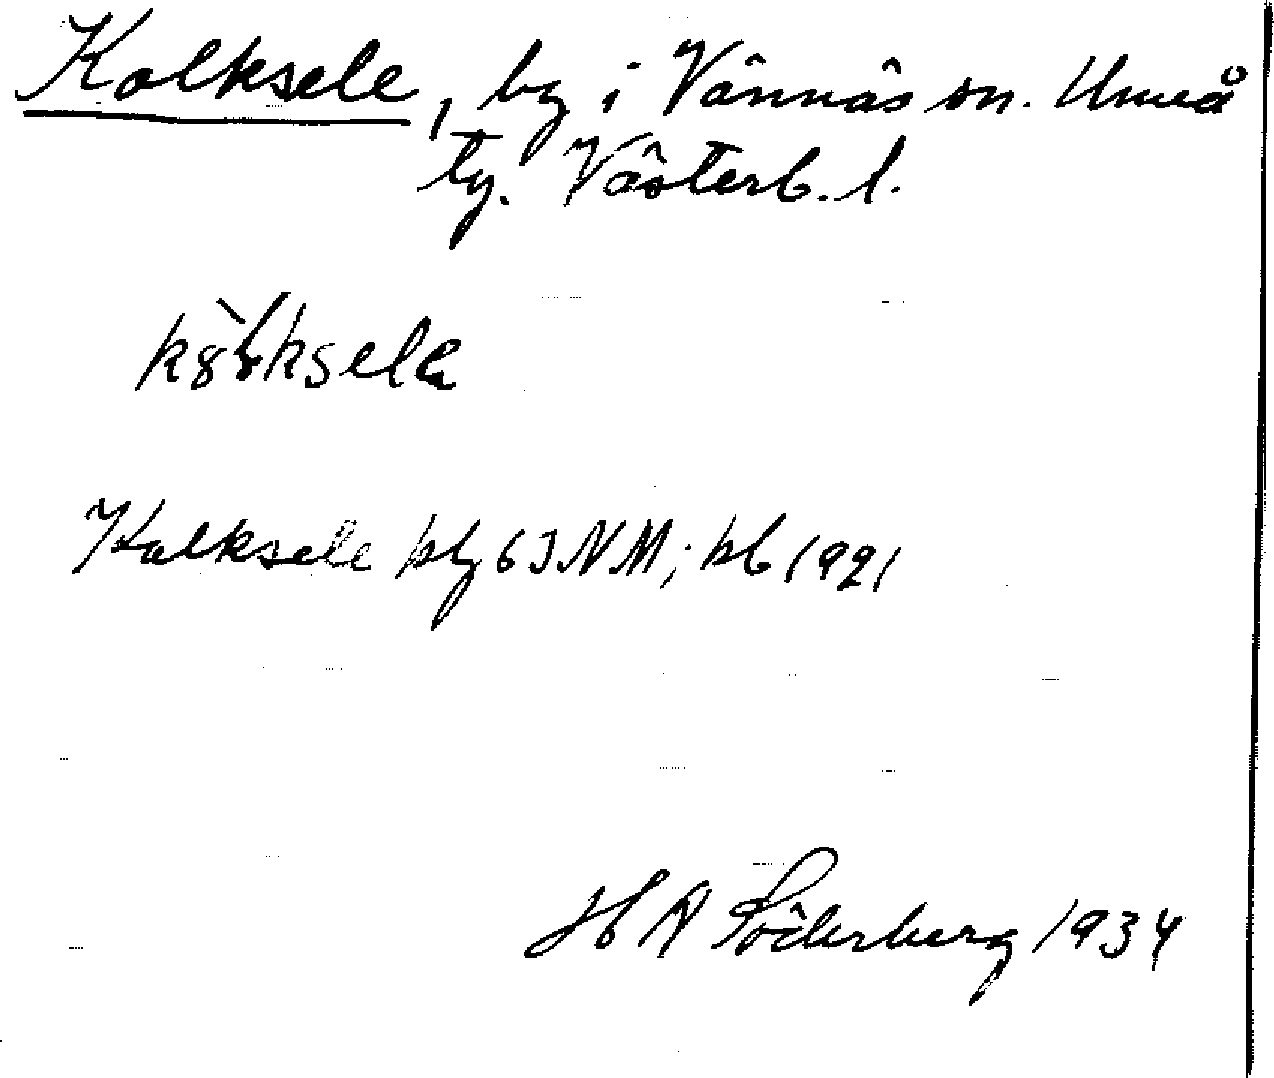 Kolksele, by i Vännäs sn. Umeå
tg. Västerb. l.
Kolksele blg 63 NM; kb 1921
H A Söderberg 1934